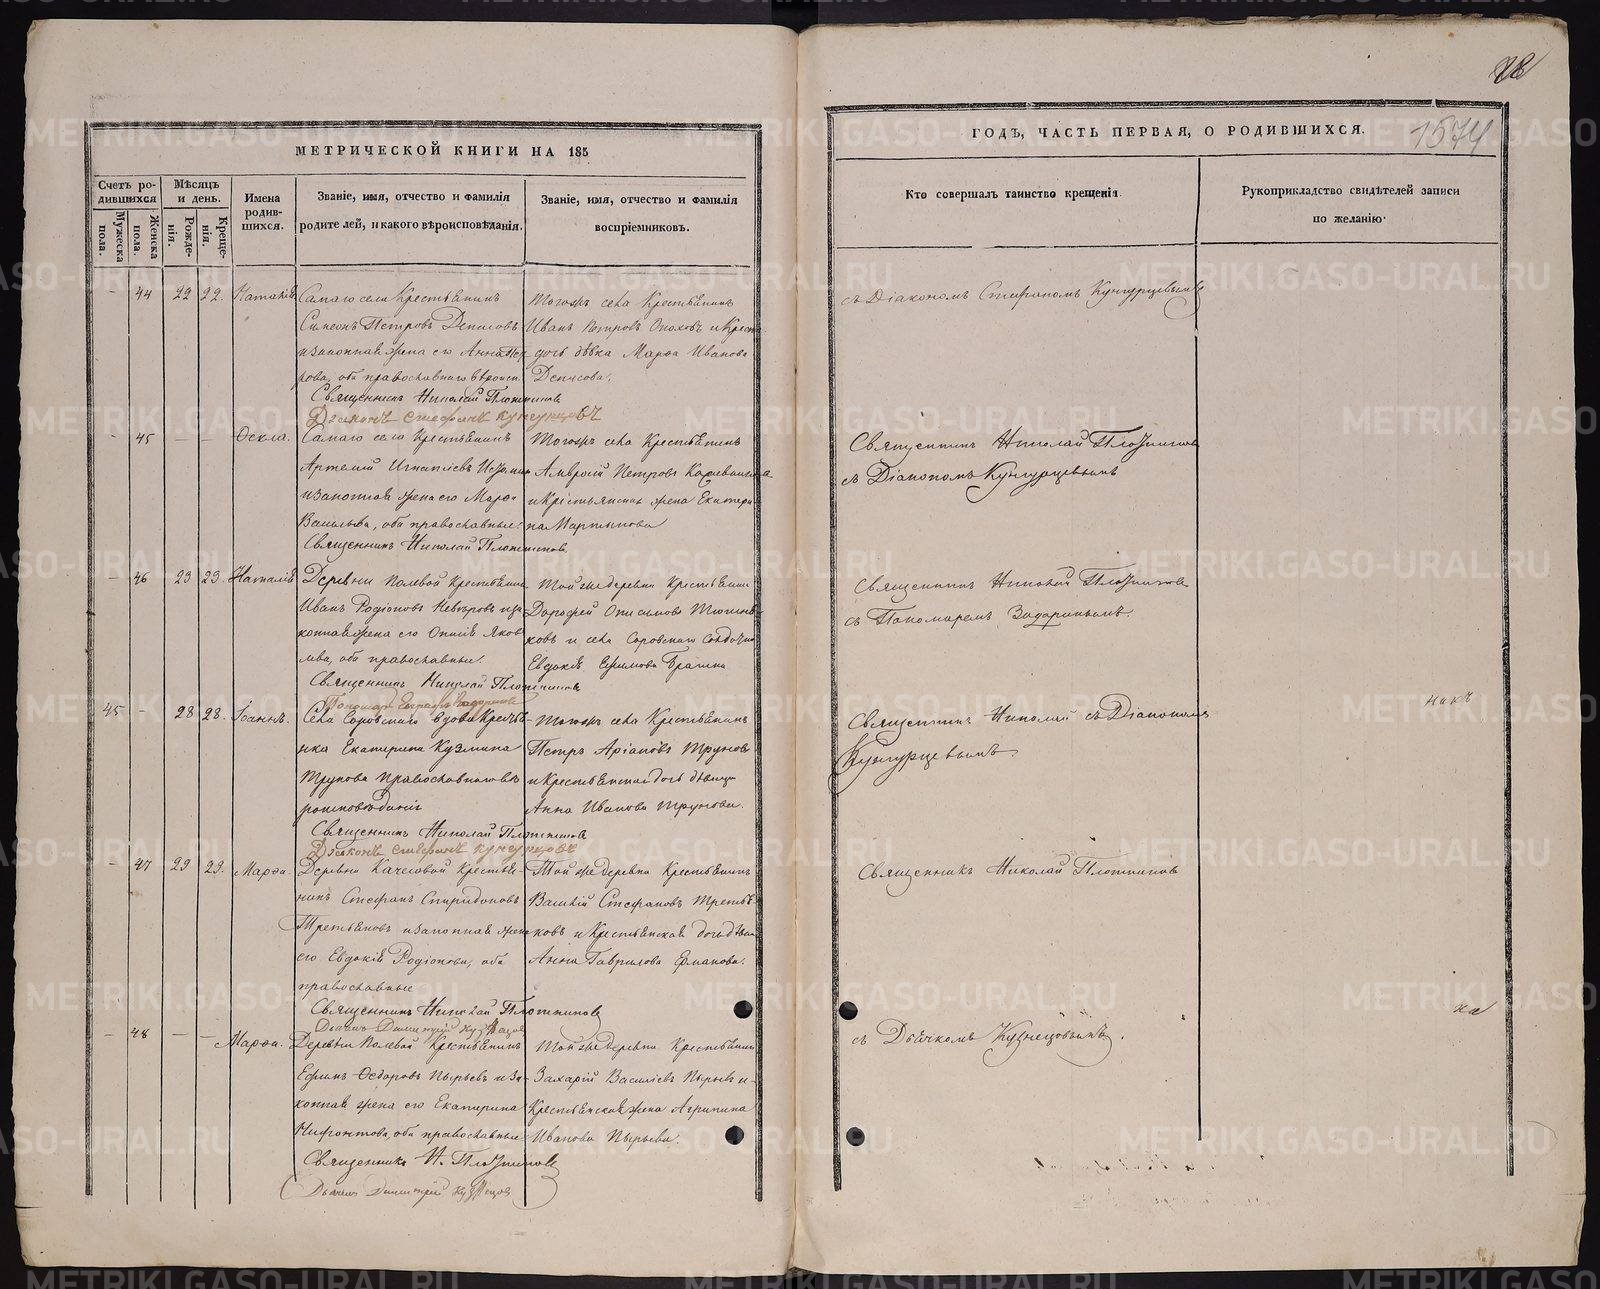 28
МЕТРИЧЕСКОЙ КНИГИ НА 185
ГОДЪ, ЧАСТЬ ПЕРВАЯ, О РОДИВШИХСЯ.
1574
Счетъ родившихся
Мужеска пола.
Женска пола.
Мѣсяцъ и день.
Рожденія.
Крещенія.
Имена родившихся.
Званіе, имя, отчество и фамилія
родителей, и какого вѣроисповѣданія.
Званіе, имя, отчество и фамилія
воспріемниковъ.
Кто совершалъ таинство крещенія.
Рукоприкладство свидѣтелей записи
по желанію.
- 44 22 22. Наталія
Самаго села Крестьянинъ
Симеонъ Петровъ Денисовъ
и законная жена его Анна Пет
рова, оба православнаго вѣроисп.
Священникъ Николай Плотниковъ
Діаконъ Стефанъ Кунгурцовъ
Тогожъ села Крестьянинъ
Иванъ Петровъ и Крест.
дочь дѣвка Марѳа Иванова
Денисова.
съ Діакономъ Стефаномъ Кунгурцевымъ
- 45 - - Ѳекла.
Самаго села Крестьянинъ
Артемій Игнатіевъ
и законная жена его Марѳа
Васильева, оба православные.
Священникъ Николай Плотниковъ
Тогожъ села Крестьянинъ
Амвросій Петровъ
и Крестьянская жена Екатери
на Мартынова
Священникъ Николай Плотниковъ
съ Діакономъ Кунгурцевымъ
- 46 23 23. Наталія
Деревни Полевой Крестьянинъ
Иванъ Родіоновъ и за
конная жена его Яков
лева, оба православные.
Священникъ Николай Плотниковъ
Тойже деревни Крестьянинъ
Дорофей Онисимовъ
ковъ и села Соровскаго
Евдокія Ефимова
Священникъ Николай Плотниковъ
съ Пономаремъ
45 - 28 28. Іоаннъ.
Села Соровскаго вдова Крестья
нка Екатерина Кузмина
Трунова православнаго вѣ
роисповѣданія
Священникъ Николай Плотниковъ
Діаконъ Стефанъ Кунгурцовъ
Тогожъ села Крестьянинъ
Петръ Труновъ
и Крестьянская дочь дѣвица
Анна Иванова Трунова.
Священникъ Николай съ Діакономъ
Кунгурцевымъ.
- 47 29 29. Марѳа.
Деревни Качесовой Крестья-
нинъ Стефанъ Спиридоновъ
Третьяковъ и законная жена
его Евдокія Родіонова, оба
православные
Священникъ Николай Плотниковъ
Дьячекъ Димитрій Кузнецов
Тойже деревни Крестьянинъ
Василій Стефановъ Третья-
ковъ и Крестьянская дочь дѣвка
Анна Гаврилова Ермакова.
Священникъ Николай Плотниковъ
- 48 - - Марѳа.
Деревни Полевой Крестьянинъ
Ефимъ Ѳедоровъ Пырьевъ и за-
конная жена его Екатерина
Нифонтова, оба православные
Священникъ Н. Плотниковъ
Дьячекъ Димитрій Кузнецов
Тойже деревни Крестьянинъ
Захарій Василіевъ Пырьевъ и
Крестьянская жена Агрипина
Иванова Пырьева.
съ Дьячкомъ Кузнецовымъ.
METRIKI.GASO-URAL.RU